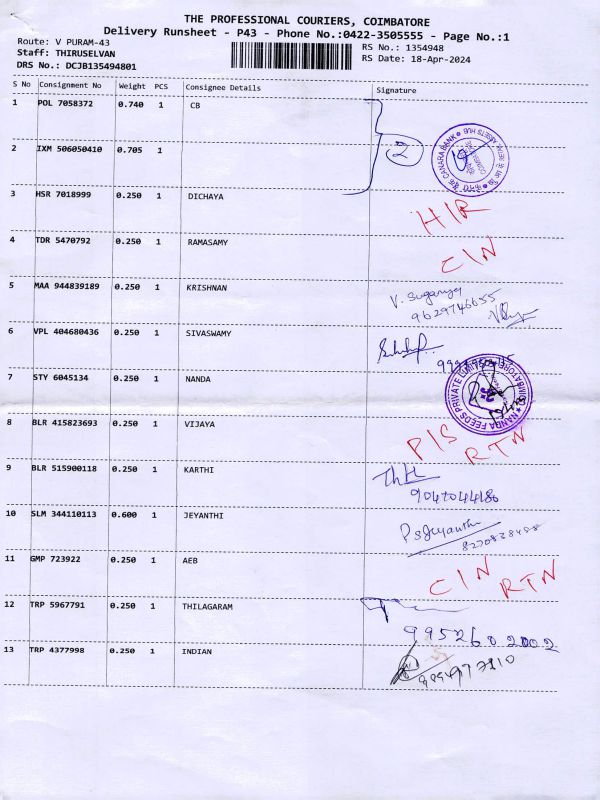 THE PROFESSIONAL COURIERS, COIMBATORE
Delivery Runsheet - P43 - Phone No.:0422-3505555 - Page No.:1
Route: V PURAM-43
Staff: THIRUSELVAN
DRS No.: DCJB135494801
RS No.: 1354948
RS Date: 18-Apr-2024
S No Consignment No Weight PCS Consignee Details Signature
1 POL 7058372 0.740 1 CB
2
2 IXM 506050410 0.705 1
CANARA BANK
3 HSR 7018999 0.250 1 DICHAYA HIR
4 TDR 5470792 0.250 1 RAMASAMY CIN
5 MAA 944839189 0.250 1 KRISHNAN V. Suganya
9629746655
6 VPL 404680436 0.250 1 SIVASWAMY
7 STY 6045134 0.250 1 NANDA
NANDA FEEDS PRIVATE LIMITED COIMBATORE
8 BLR 415823693 0.250 1 VIJAYA PIS RTN
9 BLR 515900118 0.250 1 KARTHI
9047044186
10 SLM 344110113 0.600 1 JEYANTHI P S Jeyanthi
8270828488
11 GMP 723922 0.250 1 AEB CIN RTN
12 TRP 5967791 0.250 1 THILAGARAM
9952602002
13 TRP 4377998 0.250 1 INDIAN